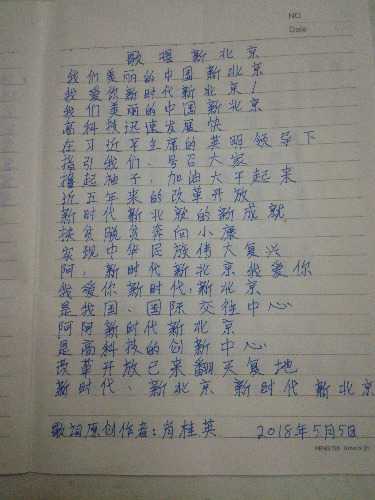 NO.
Date
歌提新北京
我们美丽的中国新北京
我爱你新时代新北京!
我们美丽的中国新北京
高科技迅速发展快
在习近平主席的英明领导下
指引我们、号召大家
撸起袖子,加油大干起来
近五年来的改革开放
新时代新北就的新成就
扶贫脱贫奔向小康
实现中华民族伟大复兴
阿,新时代新北京我爱你
我爱你新时代,新北京
是我国、国际交往中心
阿阿新时代新北京
是高科技的创新中心
改革开放已来翻天复地
新时代、新北京新时代新北京
歌词原创作者:肖桂英 2018年5月5日